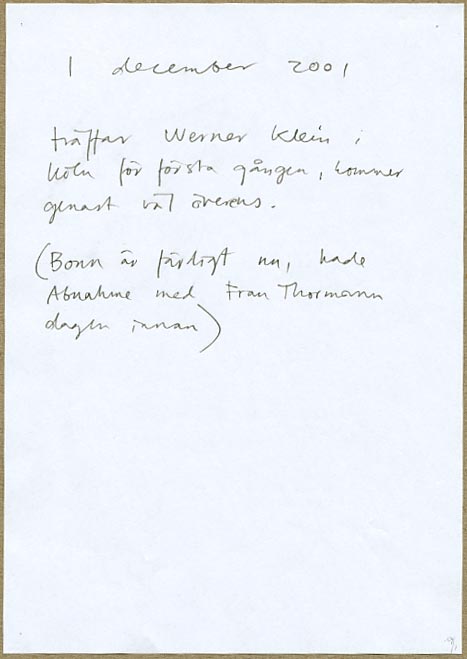 1 december 2001
träffar Werner Klein i
Köln för första gången, kommer
genast väl överens.
(Bonn är färdigt nu, hade
Abnahme med Frau Thormann
dagen innan)